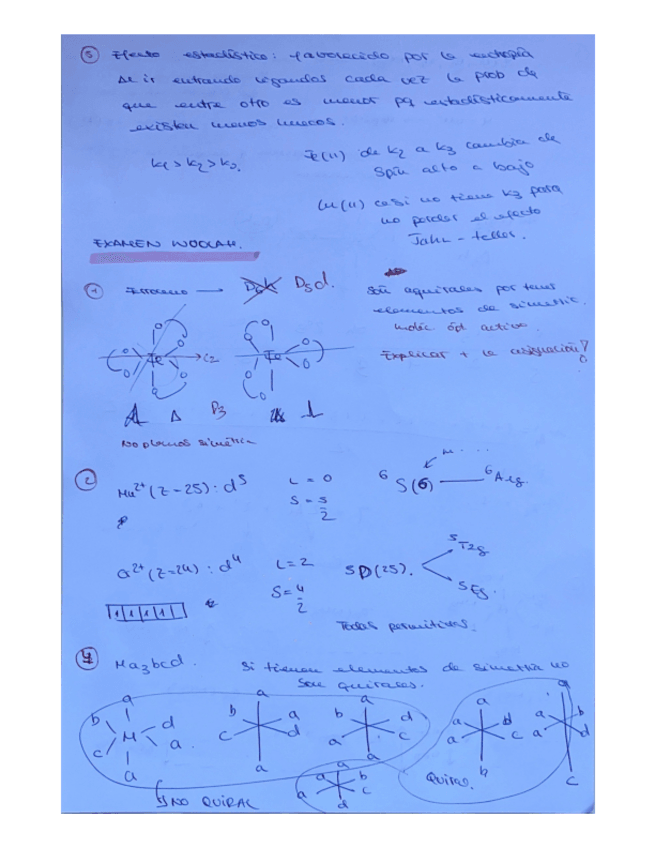 5 Efecto estadístico: favorecido por la entropía
Al ir entrando ligandos cada vez la prob de
que entre otro es menor pq estadísticamente
existen menos huecos.
K1 > K2 > K3.
Fe(II) de K2 a K3 cambia de
spin alto a bajo
Cu(II) casi no tiene K3 para
no perder el efecto
Jahn-Teller.
EXAMEN WOOLAH.
1 Erroneo → D3d.
Son aquirales por tener
elementos de simetría.
Explicar + la asignación
O O O O O O Fe C2
O O O O O O Fe
Δ D3
No planos simetría
2 Mn2+ (Z=25): d5 L=0 S=5/2 6S(6) — 6A1g
Cr2+ (Z=24): d4 L=2 S=4/2 5D(25). 5T2g
5Eg.
1 1 1 1
Todas permitivas.
4 Ma3bcd. Si tienen elementos de simetría no
son quirales.
a b d M c a a
a b a c d a
a b d a c a
a a d a c b
a a b a d c
a a b a c d
Quiral.
NO QUIRAL